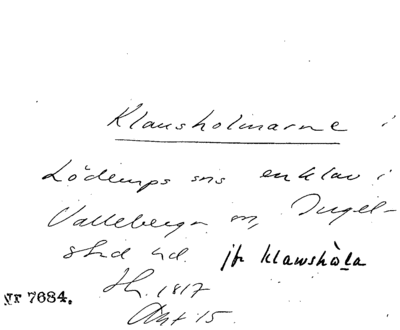 Klausholmarne i
Löderups sns enklav i
Valleberga sn, Ingel-
stad hd. jfr klawshòla
Sk. 1817
nr 7684.
Avst 15.